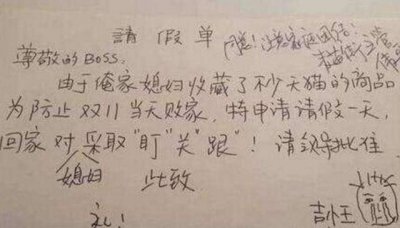 請假单
同意!注意家庭团结!
尊敬的BOSS:
由于俺家媳妇收藏了不少天猫的商品
为防止双11当天败家,特申请请假一天,
回家对采取"盯""关""跟"!请领导批准
媳妇
此致
礼!